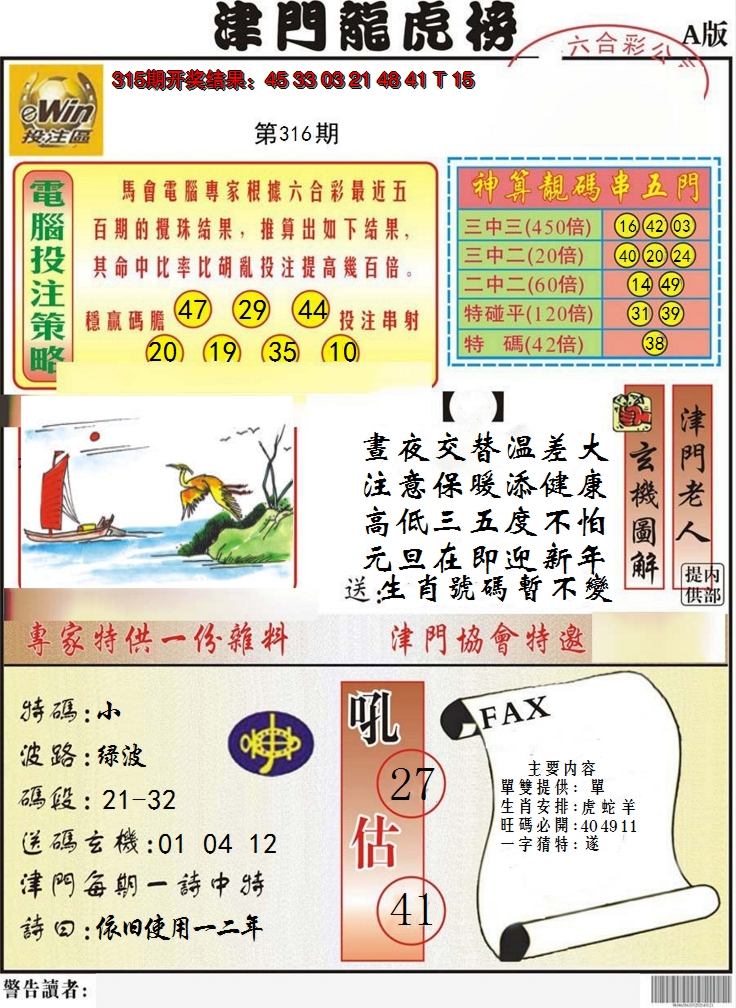 津門龍虎榜
A版
六合彩公
315期开奖结果：45 33 03 21 48 41 T 15
eWin
投注區
第316期
電腦投注策略
馬會電腦專家根據六合彩最近五
百期的攪珠结果，推算出如下结果，
其命中比率比胡亂投注提高幾百倍。
穩贏碼膽 47 29 44 投注串射
20 19 35 10
神算靚碼串五門
三中三(450倍) 16 42 03
三中二(20倍) 40 20 24
二中二(60倍) 14 49
特碰平(120倍) 31 39
特 碼(42倍) 38
【 】
晝夜交替温差大
注意保暖添健康
高低三五度不怕
元旦在即迎新年
送:生肖號碼暫不變
玄機圖解
津門老人
内部提供
專家特供一份雜料
津門協會特邀
特碼:小
波路:绿波
碼段:21-32
送碼玄機:01 04 12
津門每期一詩中特
詩曰:依旧使用一二年
吼
27
估
41
FAX
主要内容
單雙提供: 單
生肖安排:虎蛇羊
旺碼必開:404911
一字猜特:遂
警告讀者: